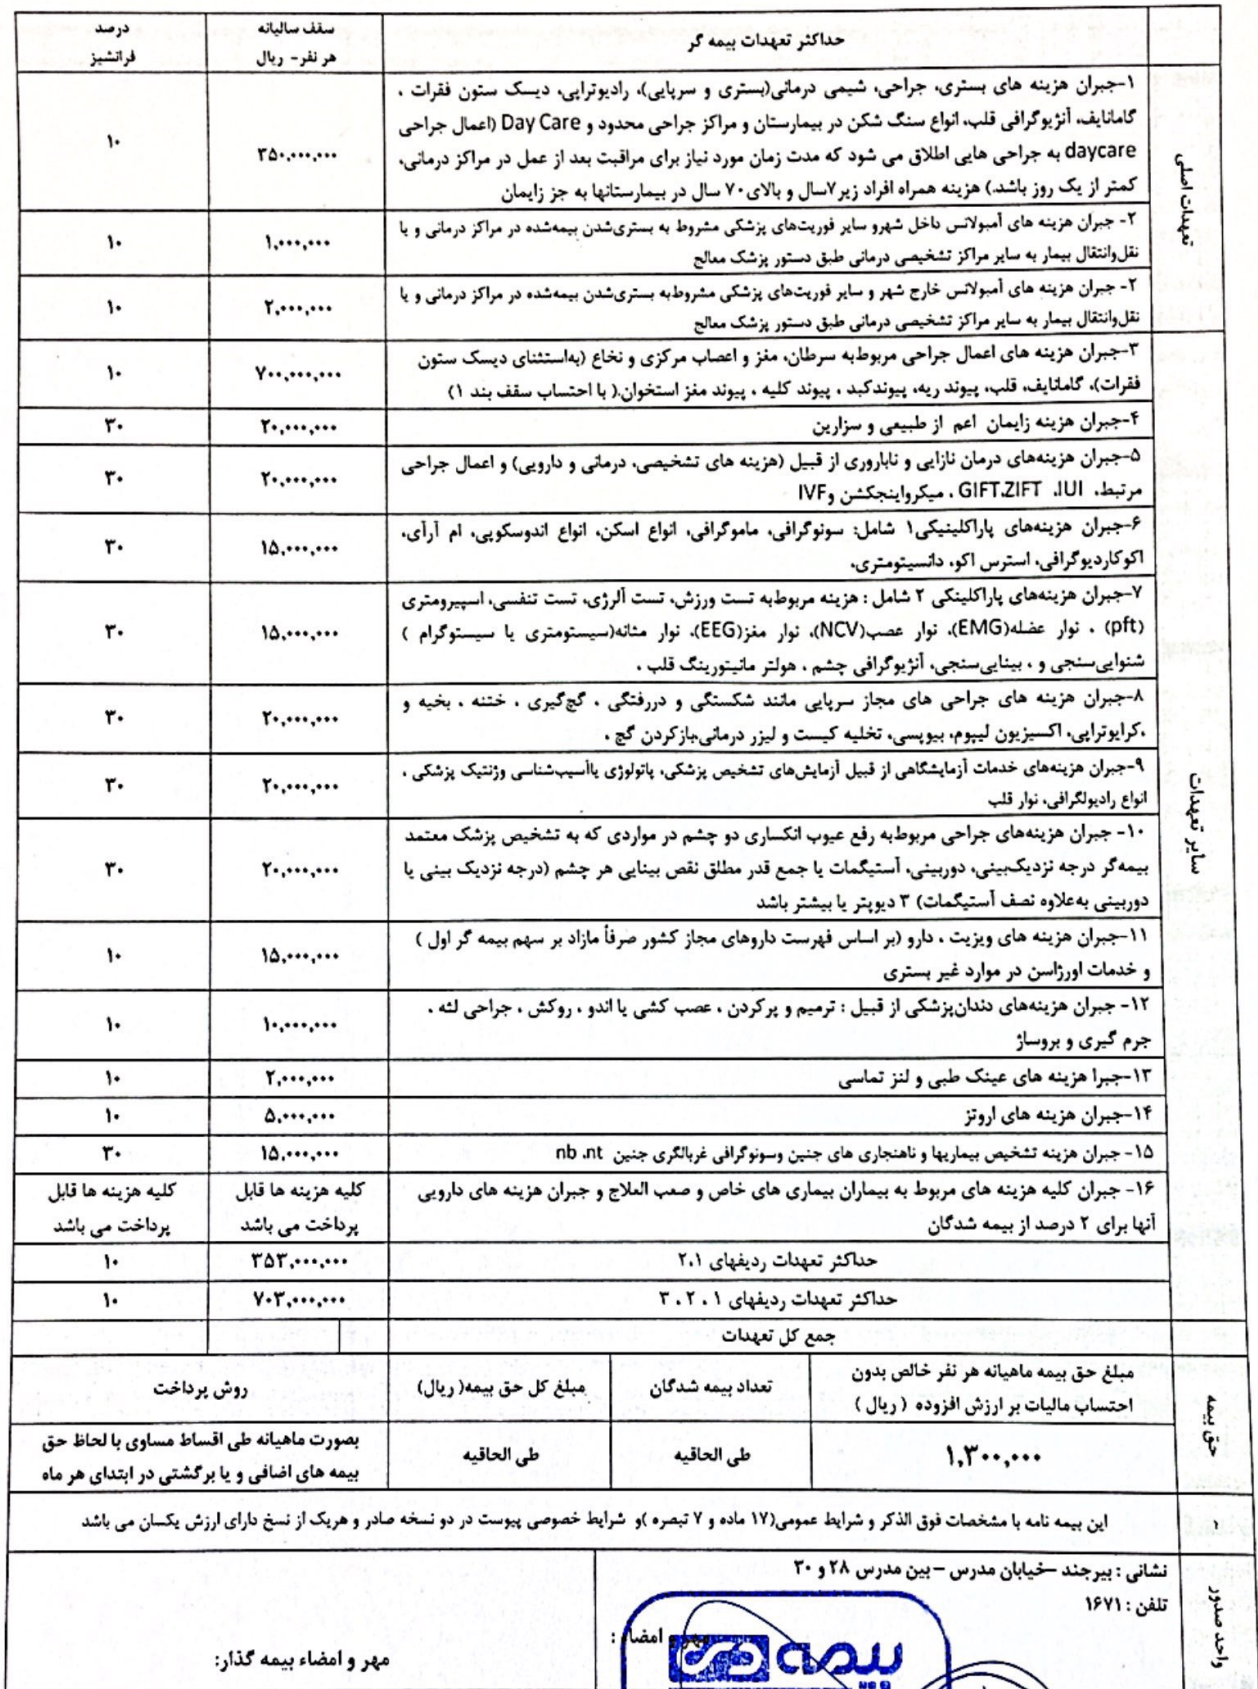 حداکثر تعهدات بیمه گر
سقف سالیانه
هر نفر- ریال
درصد
فرانشیز
تعهدات اصلی
۱-جبران هزینه های بستری، جراحی، شیمی درمانی(بستری و سرپایی)، رادیوتراپی، دیسک ستون فقرات ،
گامانایف، آنژیوگرافی قلب، انواع سنگ شکن در بیمارستان و مراکز جراحی محدود و Day Care (اعمال جراحی
daycare به جراحی هایی اطلاق می شود که مدت زمان مورد نیاز برای مراقبت بعد از عمل در مراکز درمانی،
کمتر از یک روز باشد.) هزینه همراه افراد زیر۷سال و بالای۷۰ سال در بیمارستانها به جز زایمان
۳۵۰,۰۰۰,۰۰۰
۱۰
۲- جبران هزینه های آمبولانس داخل شهرو سایر فوریت‌های پزشکی مشروط به بستری‌شدن بیمه‌شده در مراکز درمانی و یا
نقل‌وانتقال بیمار به سایر مراکز تشخیصی درمانی طبق دستور پزشک معالج
۱,۰۰۰,۰۰۰
۱۰
۲- جبران هزینه های آمبولانس خارج شهر و سایر فوریت‌های پزشکی مشروط‌به بستری‌شدن بیمه‌شده در مراکز درمانی و یا
نقل‌وانتقال بیمار به سایر مراکز تشخیصی درمانی طبق دستور پزشک معالج
۲,۰۰۰,۰۰۰
۱۰
سایر تعهدات
۳-جبران هزینه های اعمال جراحی مربوط‌به سرطان، مغز و اعصاب مرکزی و نخاع (به‌استثنای دیسک ستون
فقرات)، گامانایف، قلب، پیوند ریه، پیوندکبد ، پیوند کلیه ، پیوند مغز استخوان.( با احتساب سقف بند ۱)
۷۰۰,۰۰۰,۰۰۰
۱۰
۴-جبران هزینه زایمان اعم از طبیعی و سزارین
۲۰,۰۰۰,۰۰۰
۳۰
۵-جبران هزینه‌های درمان نازایی و ناباروری از قبیل (هزینه های تشخیصی، درمانی و دارویی) و اعمال جراحی
مرتبط، GIFT،ZIFT ،IUI ، میکرواینجکشن وIVF
۲۰,۰۰۰,۰۰۰
۳۰
۶-جبران هزینه‌های پاراکلینیکی۱ شامل: سونوگرافی، ماموگرافی، انواع اسکن، انواع اندوسکوپی، ام آرآی،
اکوکاردیوگرافی، استرس اکو، دانسیتومتری،
۱۵,۰۰۰,۰۰۰
۳۰
۷-جبران هزینه‌های پاراکلینکی ۲ شامل : هزینه مربوط‌به تست ورزش، تست آلرژی، تست تنفسی، اسپیرومتری
(pft) ، نوار عضله(EMG)، نوار عصب(NCV)، نوار مغز(EEG)، نوار مثانه(سیستومتری یا سیستوگرام )
شنوایی‌سنجی و ، بینایی‌سنجی، آنژیوگرافی چشم ، هولتر مانیتورینگ قلب ،
۱۵,۰۰۰,۰۰۰
۳۰
۸-جبران هزینه های جراحی های مجاز سرپایی مانند شکستگی و دررفتگی ، گچ‌گیری ، ختنه ، بخیه و
،کرایوتراپی، اکسیزیون لیپوم، بیوپسی، تخلیه کیست و لیزر درمانی،بازکردن گچ ،
۲۰,۰۰۰,۰۰۰
۳۰
۹-جبران هزینه‌های خدمات آزمایشگاهی از قبیل آزمایش‌های تشخیص پزشکی، پاتولوژی یاآسیب‌شناسی وژنتیک پزشکی ،
انواع رادیولگرافی، نوار قلب
۲۰,۰۰۰,۰۰۰
۳۰
۱۰- جبران هزینه‌های جراحی مربوط‌به رفع عیوب انکساری دو چشم در مواردی که به تشخیص پزشک معتمد
بیمه‌گر درجه نزدیک‌بینی، دوربینی، آستیگمات یا جمع قدر مطلق نقص بینایی هر چشم (درجه نزدیک بینی یا
دوربینی به‌علاوه نصف آستیگمات) ۳ دیوپتر یا بیشتر باشد
۲۰,۰۰۰,۰۰۰
۳۰
۱۱-جبران هزینه های ویزیت ، دارو (بر اساس فهرست داروهای مجاز کشور صرفاً مازاد بر سهم بیمه گر اول )
و خدمات اورژاسن در موارد غیر بستری
۱۵,۰۰۰,۰۰۰
۱۰
۱۲- جبران هزینه‌های دندان‌پزشکی از قبیل : ترمیم و پرکردن ، عصب کشی یا اندو ، روکش ، جراحی لثه ،
جرم گیری و بروساژ
۱۰,۰۰۰,۰۰۰
۱۰
۱۳-جبرا هزینه های عینک طبی و لنز تماسی
۲,۰۰۰,۰۰۰
۱۰
۱۴-جبران هزینه های اروتز
۵,۰۰۰,۰۰۰
۱۰
۱۵- جبران هزینه تشخیص بیماریها و ناهنجاری های جنین وسونوگرافی غربالگری جنین nb ،nt
۱۵,۰۰۰,۰۰۰
۳۰
۱۶- جبران کلیه هزینه های مربوط به بیماران بیماری های خاص و صعب العلاج و جبران هزینه های دارویی
آنها برای ۲ درصد از بیمه شدگان
کلیه هزینه ها قابل
پرداخت می باشد
کلیه هزینه ها قابل
پرداخت می باشد
حداکثر تعهدات ردیفهای ۲،۱
۳۵۳,۰۰۰,۰۰۰
۱۰
حداکثر تعهدات ردیفهای ۱ ، ۲ ، ۳
۷۰۳,۰۰۰,۰۰۰
۱۰
جمع کل تعهدات
حق بیمه
مبلغ حق بیمه ماهیانه هر نفر خالص بدون
احتساب مالیات بر ارزش افزوده ( ریال )
تعداد بیمه شدگان
مبلغ کل حق بیمه( ریال)
روش پرداخت
۱,۳۰۰,۰۰۰
طی الحاقیه
طی الحاقیه
بصورت ماهیانه طی اقساط مساوی با لحاظ حق
بیمه های اضافی و یا برگشتی در ابتدای هر ماه
این بیمه نامه با مشخصات فوق الذکر و شرایط عمومی(۱۷ ماده و ۷ تبصره )و شرایط خصوصی پیوست در دو نسخه صادر و هریک از نسخ دارای ارزش یکسان می باشد
واحد صدور
نشانی : بیرجند –خیابان مدرس –بین مدرس ۲۸ و ۳۰
تلفن : ۱۶۷۱
مهر و امضاء :
بیمه دی
مهر و امضاء بیمه گذار: